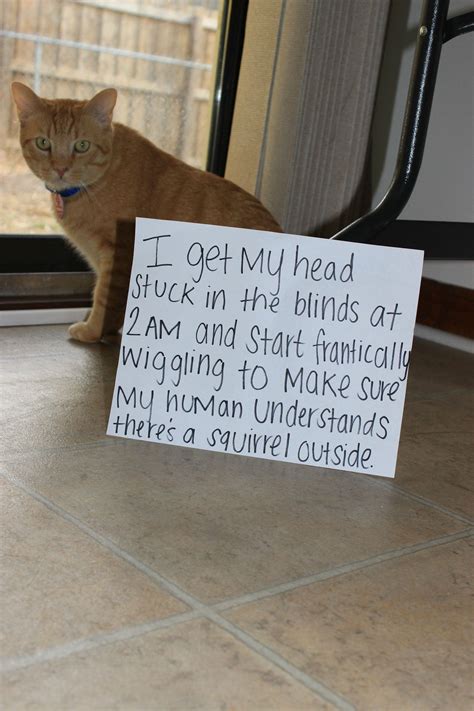 I get My head
stuck in the blinds at
2 AM and start frantically
wiggling to Make sure
My human understands
there's a squirrel outside.